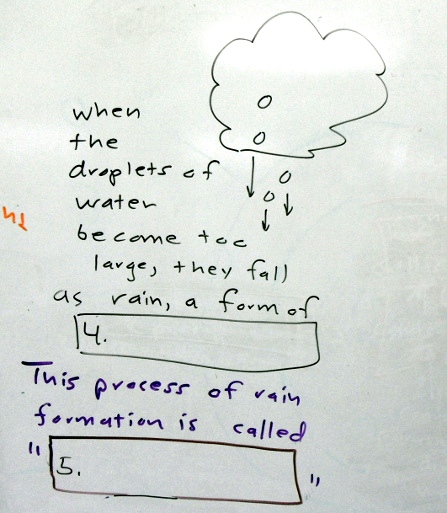 when
the
droplets of
water
become too
large, they fall
as rain, a form of
4.
This process of rain
formation is called
"5."